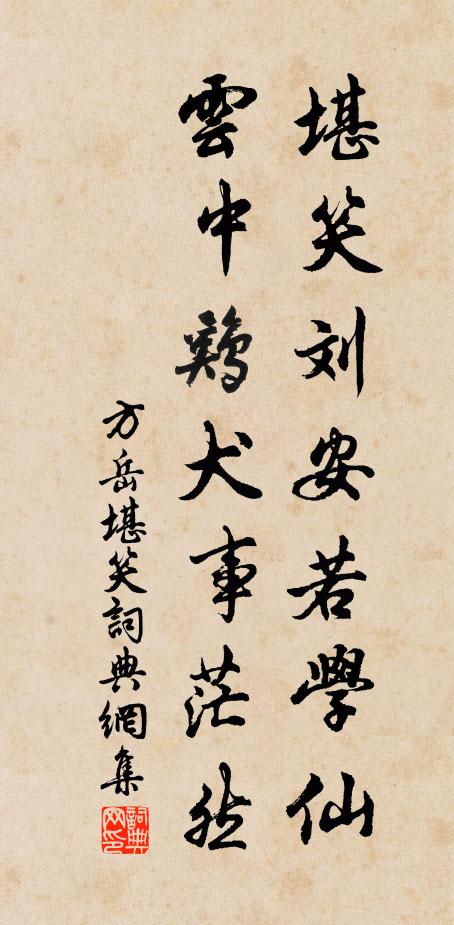 堪笑刘安若學仙
雲中鷄犬事茫然
方岳堪笑詞典網集
詞典网印